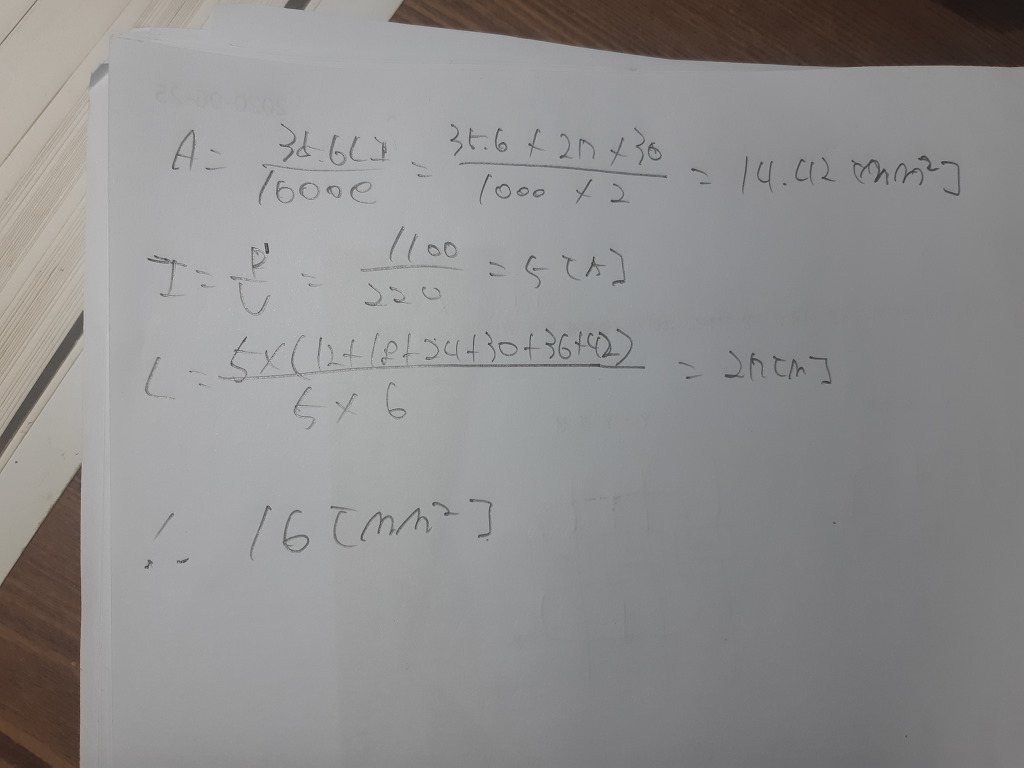 A = 35.6LI / 1000e = 35.6 × 27 × 30 / 1000 × 2 = 14.42 [mm²]
I = P / V = 1100 / 220 = 5 [A]
L = 5×(12+18+24+30+36+42) / 5 × 6 = 27 [m]
∴ 16 [mm²]